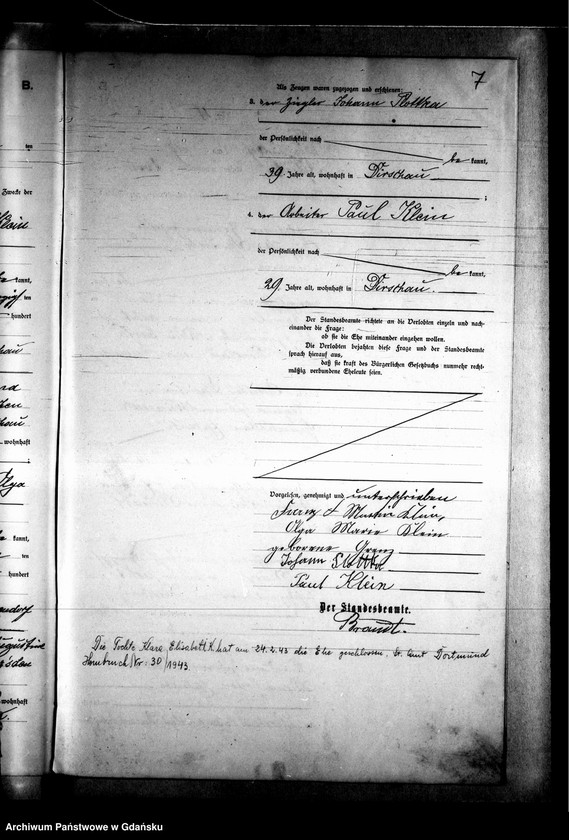 B.
7
Als Zeugen waren zugezogen und erschienen:
3. der Ziegler Johann
der Persönlichkeit nach
be kannt,
39 Jahre alt, wohnhaft in Dirschau
;
4. der Arbeiter Paul Klein
der Persönlichkeit nach
be kannt,
29 Jahre alt, wohnhaft in Dirschau.
Der Standesbeamte richtete an die Verlobten einzeln und nach-
einander die Frage:
ob sie die Ehe miteinander eingehen wollen.
Die Verlobten bejahten diese Frage und der Standesbeamte
sprach hierauf aus,
daß sie kraft des Bürgerlichen Gesetzbuchs nunmehr recht-
mäßig verbundene Eheleute seien.
Vorgelesen, genehmigt und unterschrieben
Franz Martin Klein,
Olga Marie Klein
geborene Grenz
Johann
Paul Klein
Der Standesbeamte.
Brandt.
Die Tochter Klara, Elisabeth K. hat am 24.2.43 die Ehe geschlossen, St. Amt Dortmund
Hombruch Nr. 30/1943.
ten
Zwecke der
Klein
kannt,
ten
hundert
wohnhaft
;
Olga
kannt,
ten
hundert
wohnhaft
Archiwum Państwowe w Gdańsku